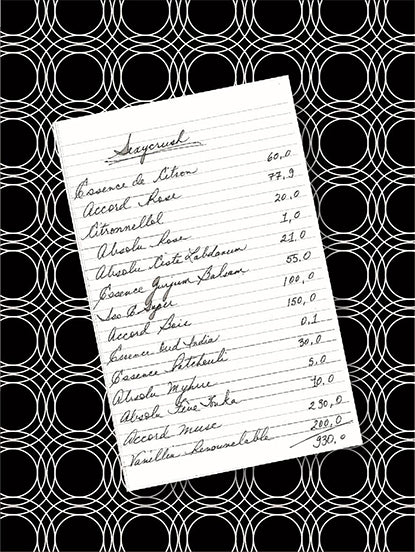 Sexycrush
Essence de Citron 60,0
Accord Rose 77,9
Citronnellol 20,0
Absolu Rose 1,0
Absolu Ciste Labdanum 21,0
Essence Gurjum Balsam 55,0
Iso E Super 100,0
Accord Bois 150,0
Essence Oud India 0,1
Essence Patchouli 30,0
Absolu Myhrre 5,0
Absolu Fève Tonka 10,0
Accord Musc
Vanilline Renouvelable 200,0
930,0